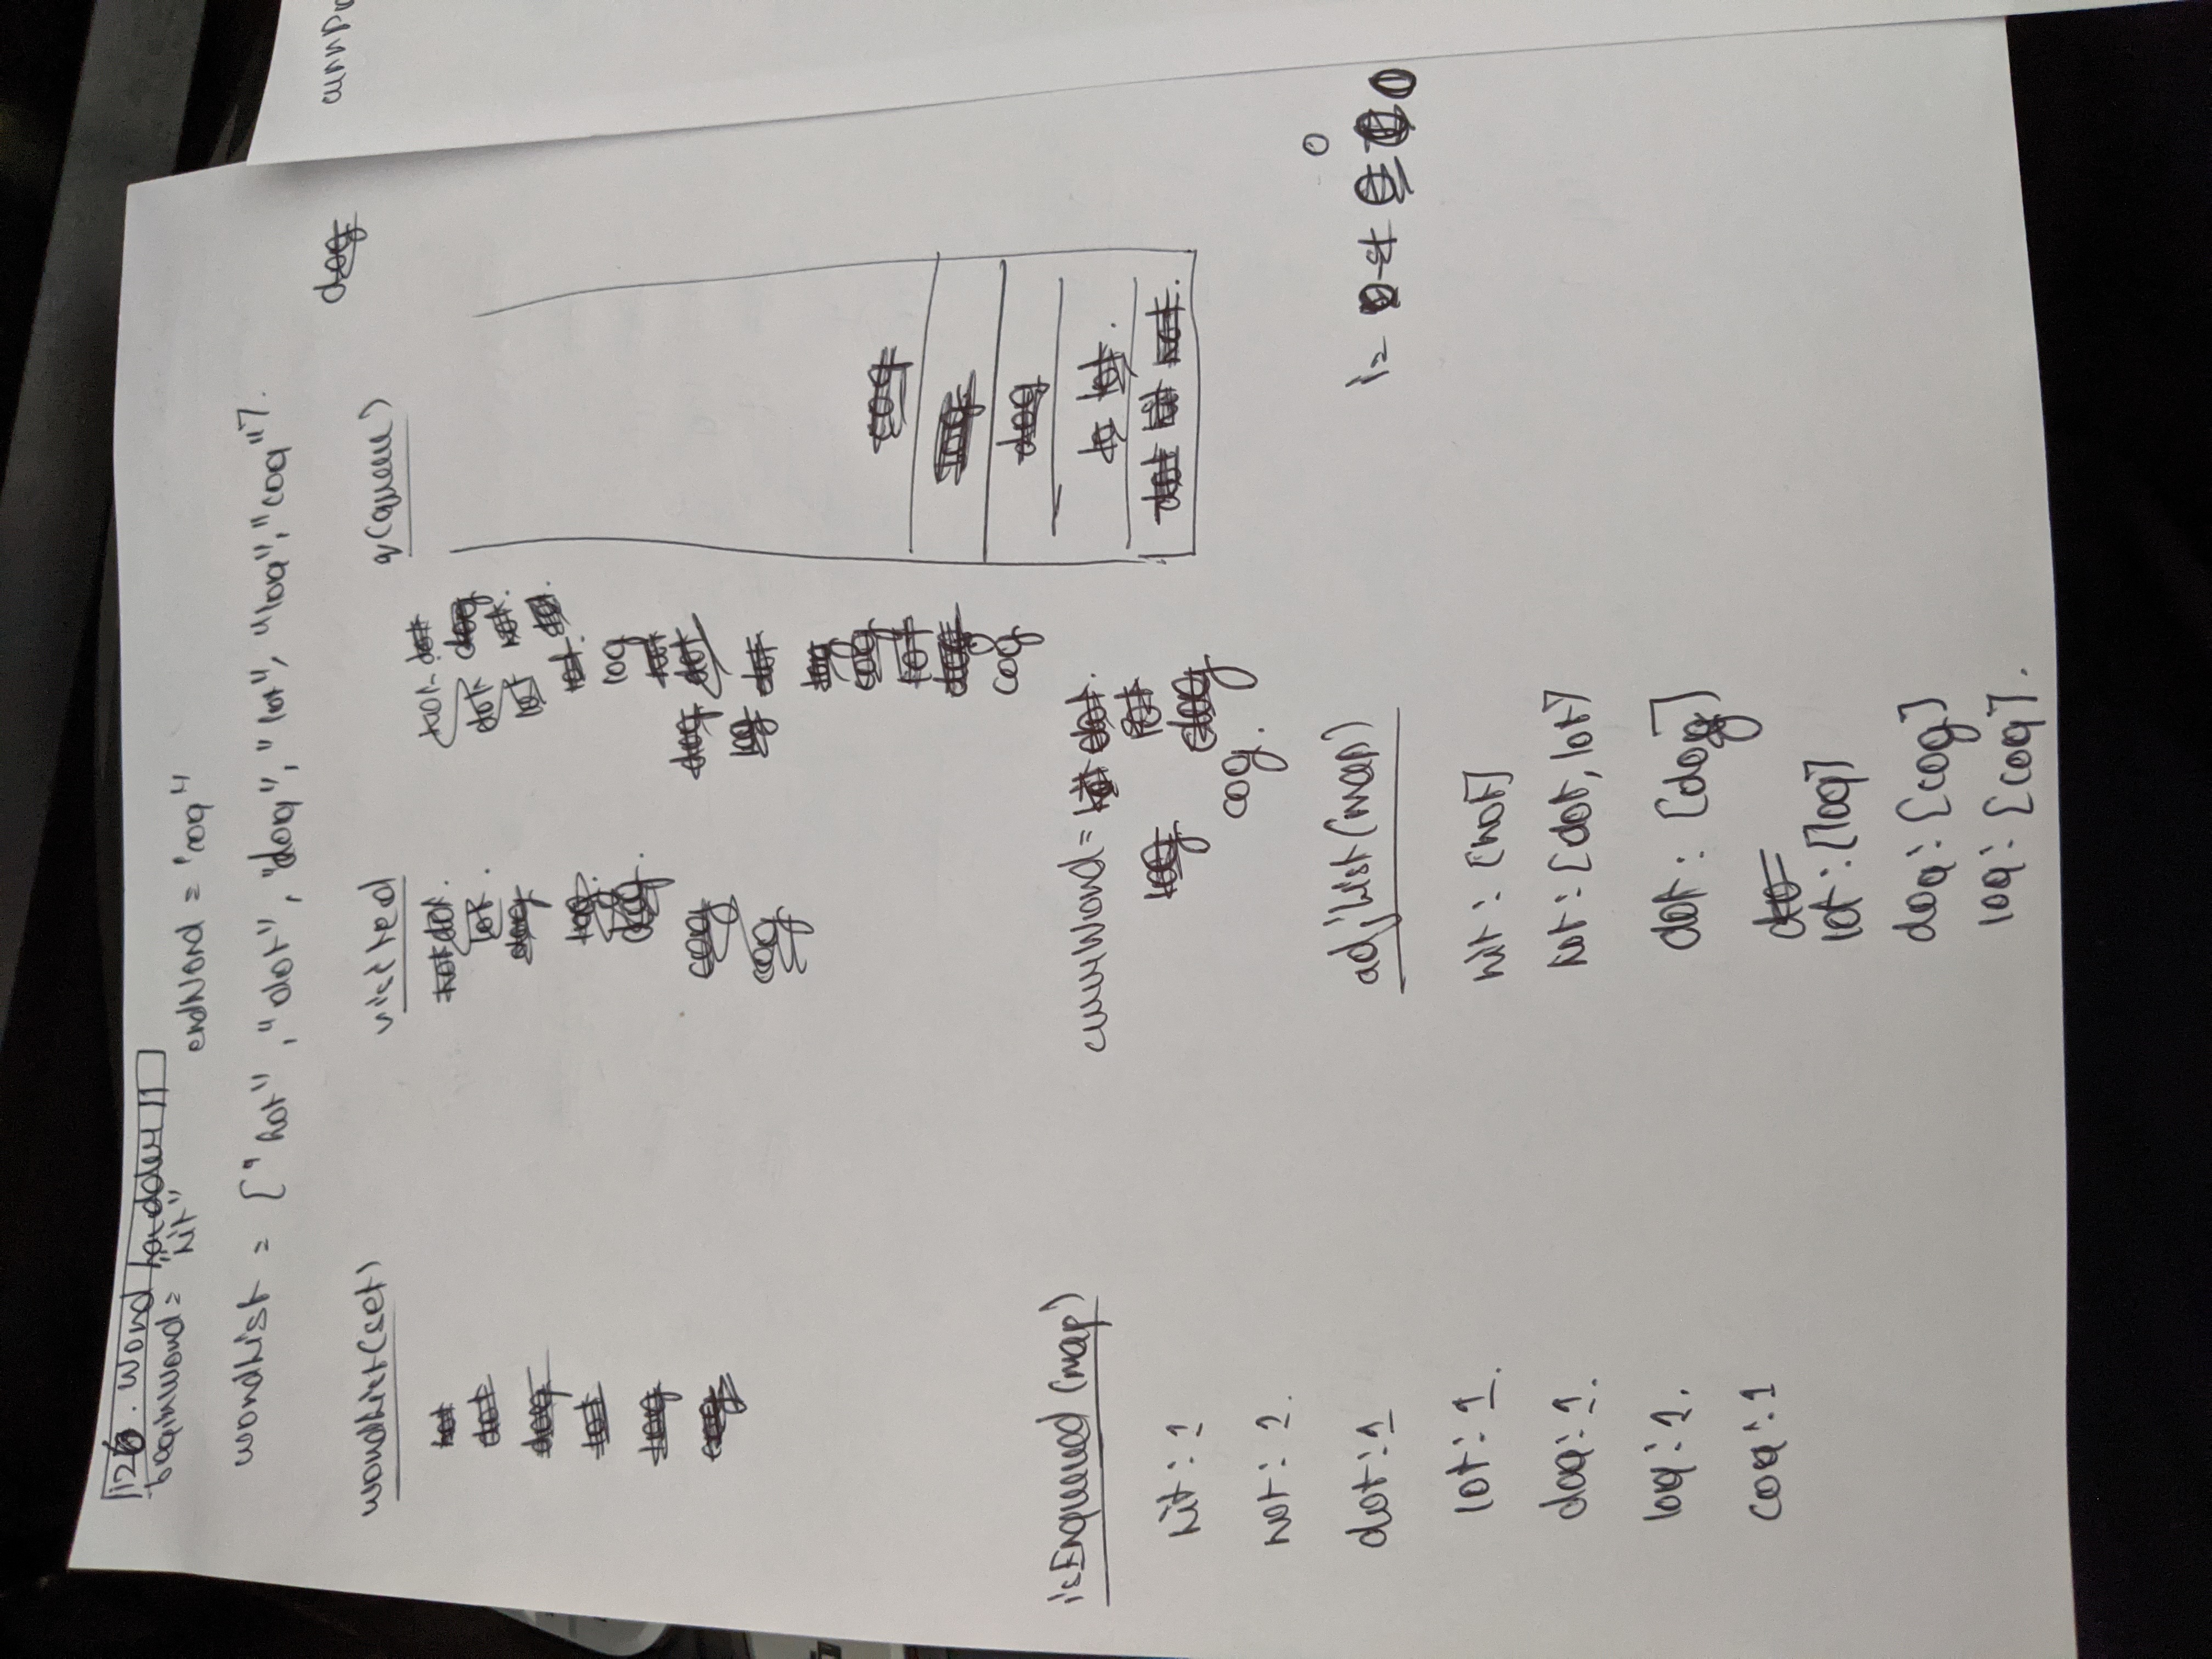 126. Word Ladder II
beginWord = "hit" endWord = "cog"
wordList = ["hot", "dot", "dog", "lot", "log", "cog"].
dog
currPa
wordList(set)
hot
dot
dog
lot
log
cog
visited
hot dot.
lot.
dog
log.
dog.
cog
cog
hot dot
dot dog
lot hot.
lot. dot.
log
lot
dog dot
log dot
log
cog
lot
dog
cog
q(queue)
cog
log
dog
lo lot.
dot hit hot.
isEnqueued (map)
hit: 1
hot: 1.
dot: 1
lot: 1.
dog: 1.
log: 1.
cog: 1
currWord = hit dot.
log lot
dog
cog.
adjList(map)
hit: [hot]
hot: [dot, lot]
dot: [dog]
do
lot: [log]
dog: [cog]
log: [cog].
0
i =